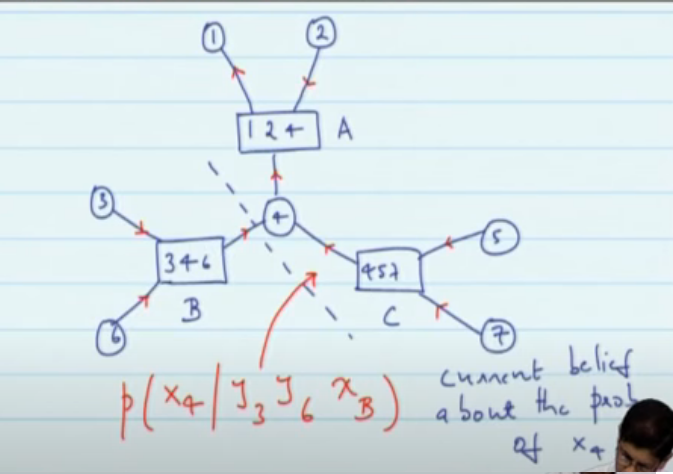 1 2
1 2 4 A
3 4 5
3 4 6 4 5 7
B C
6 7
p(x₄ | y₃ y₆ x_B)
current belief
about the prob
of x₄